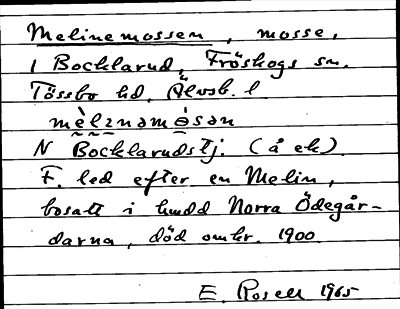 Melinemossen, mosse,
i Bocklarud, Fröskogs sn.
Tössbo hd, Älvsb. l
mèlɪnəmɵ̀sən
N Bocklarudstj. (å ek).
F. led efter en Melin,
bosatt i hmdd Norra Ödegår-
darna, död omkr. 1900.
E. Rosell 1965